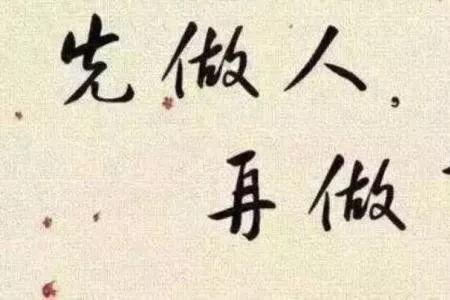 先做人，
再做